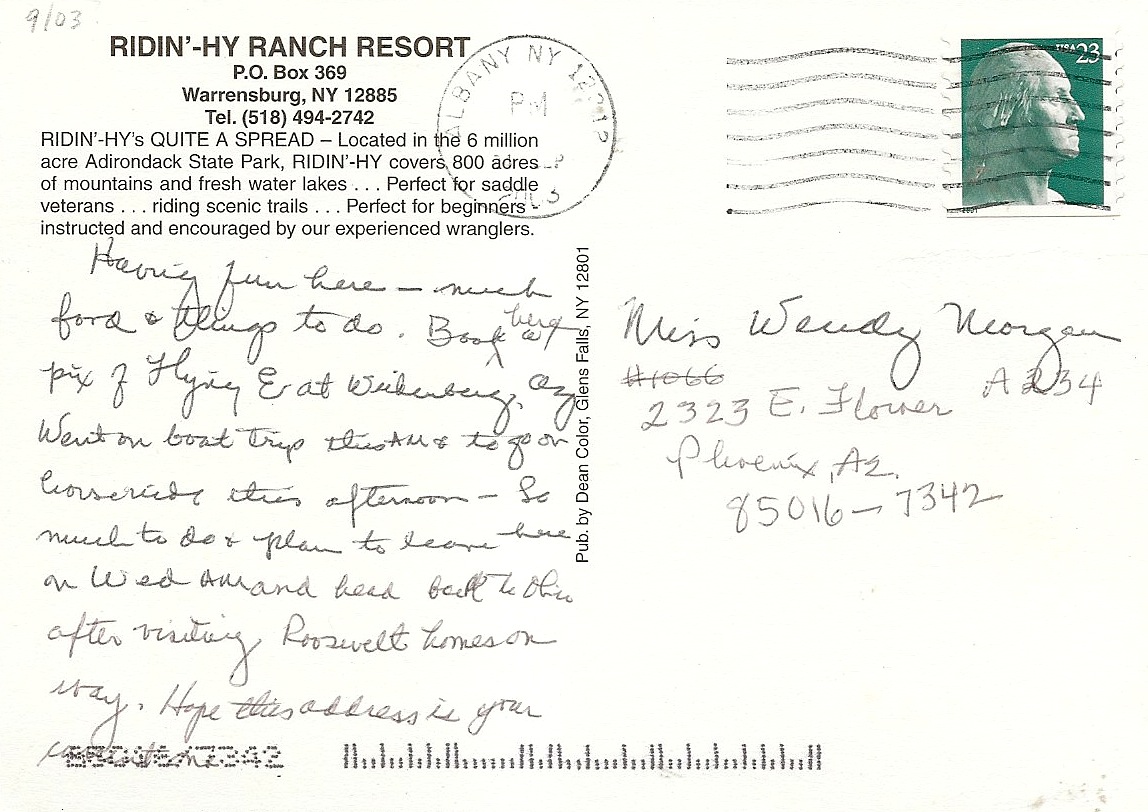 9/03
RIDIN'-HY RANCH RESORT
P.O. Box 369
Warrensburg, NY 12885
Tel. (518) 494-2742
RIDIN'-HY's QUITE A SPREAD – Located in the 6 million
acre Adirondack State Park, RIDIN'-HY covers 800 acres
of mountains and fresh water lakes . . . Perfect for saddle
veterans . . . riding scenic trails . . . Perfect for beginners -
instructed and encouraged by our experienced wranglers.
ALBANY NY 12212
PM
2003
USA 23
2001
Having fun here – much
food & things to do. Book here w/
pix of Flying E at Wickenburg, Az
Went on boat trip this AM & to go on
horseride this afternoon – So
much to do & plan to leave here
on Wed AM and head back to Ohio
after visiting Roosevelt homes on
way. Hope this address is your
current one
Pub. by Dean Color, Glens Falls, NY 12801
Miss Wendy Morgan
#1066
2323 E. Flower A234
Phoenix, Az.
85016–7342